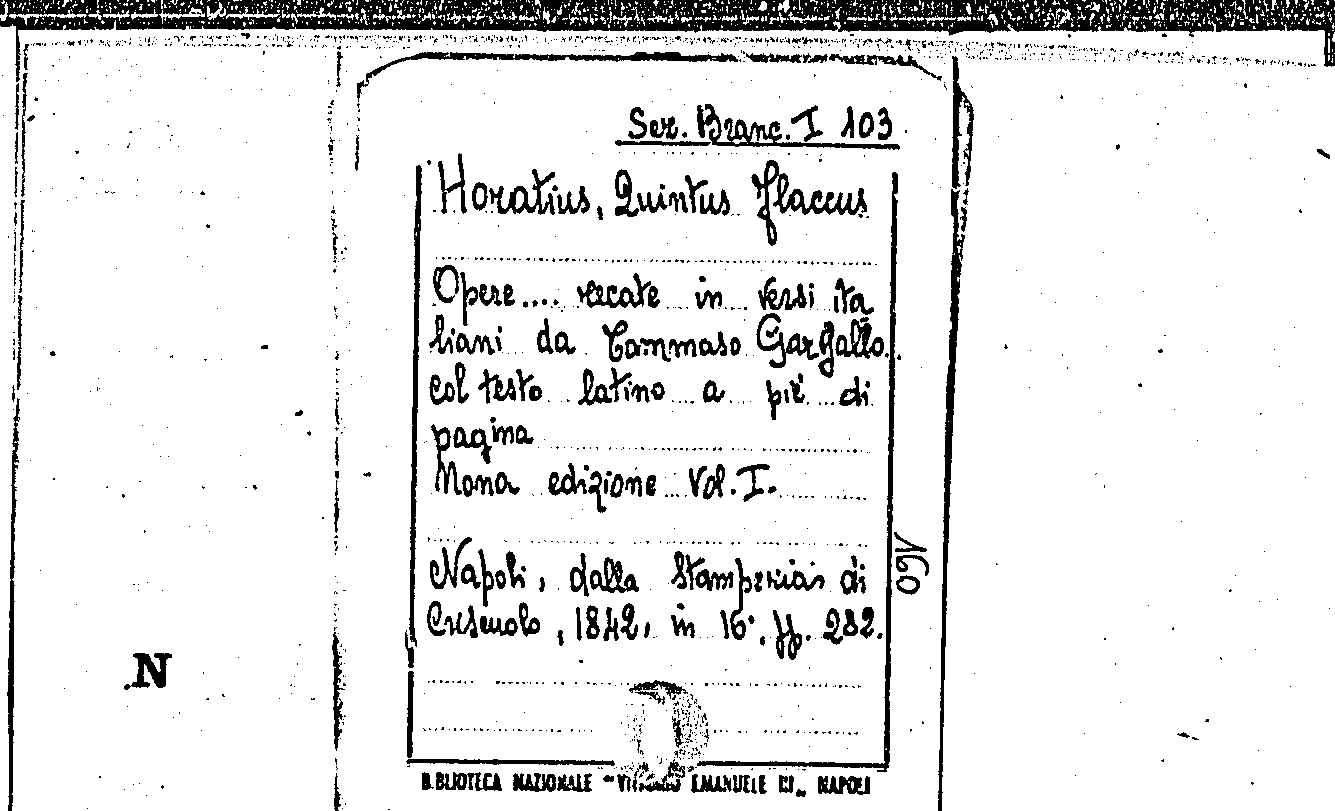 Sez. Branc. I 103
Horatius, Quintus Flaccus
Opere.... recate in versi ita
liani da Tommaso Gargallo
col testo latino a piè di
pagina
Nona edizione Vol. I.
Napoli, dalla Stamperia di
1842, in 16°. ff. 282.
160
N
BIBLIOTECA NAZIONALE "VITTORIO EMANUELE III„ NAPOLI